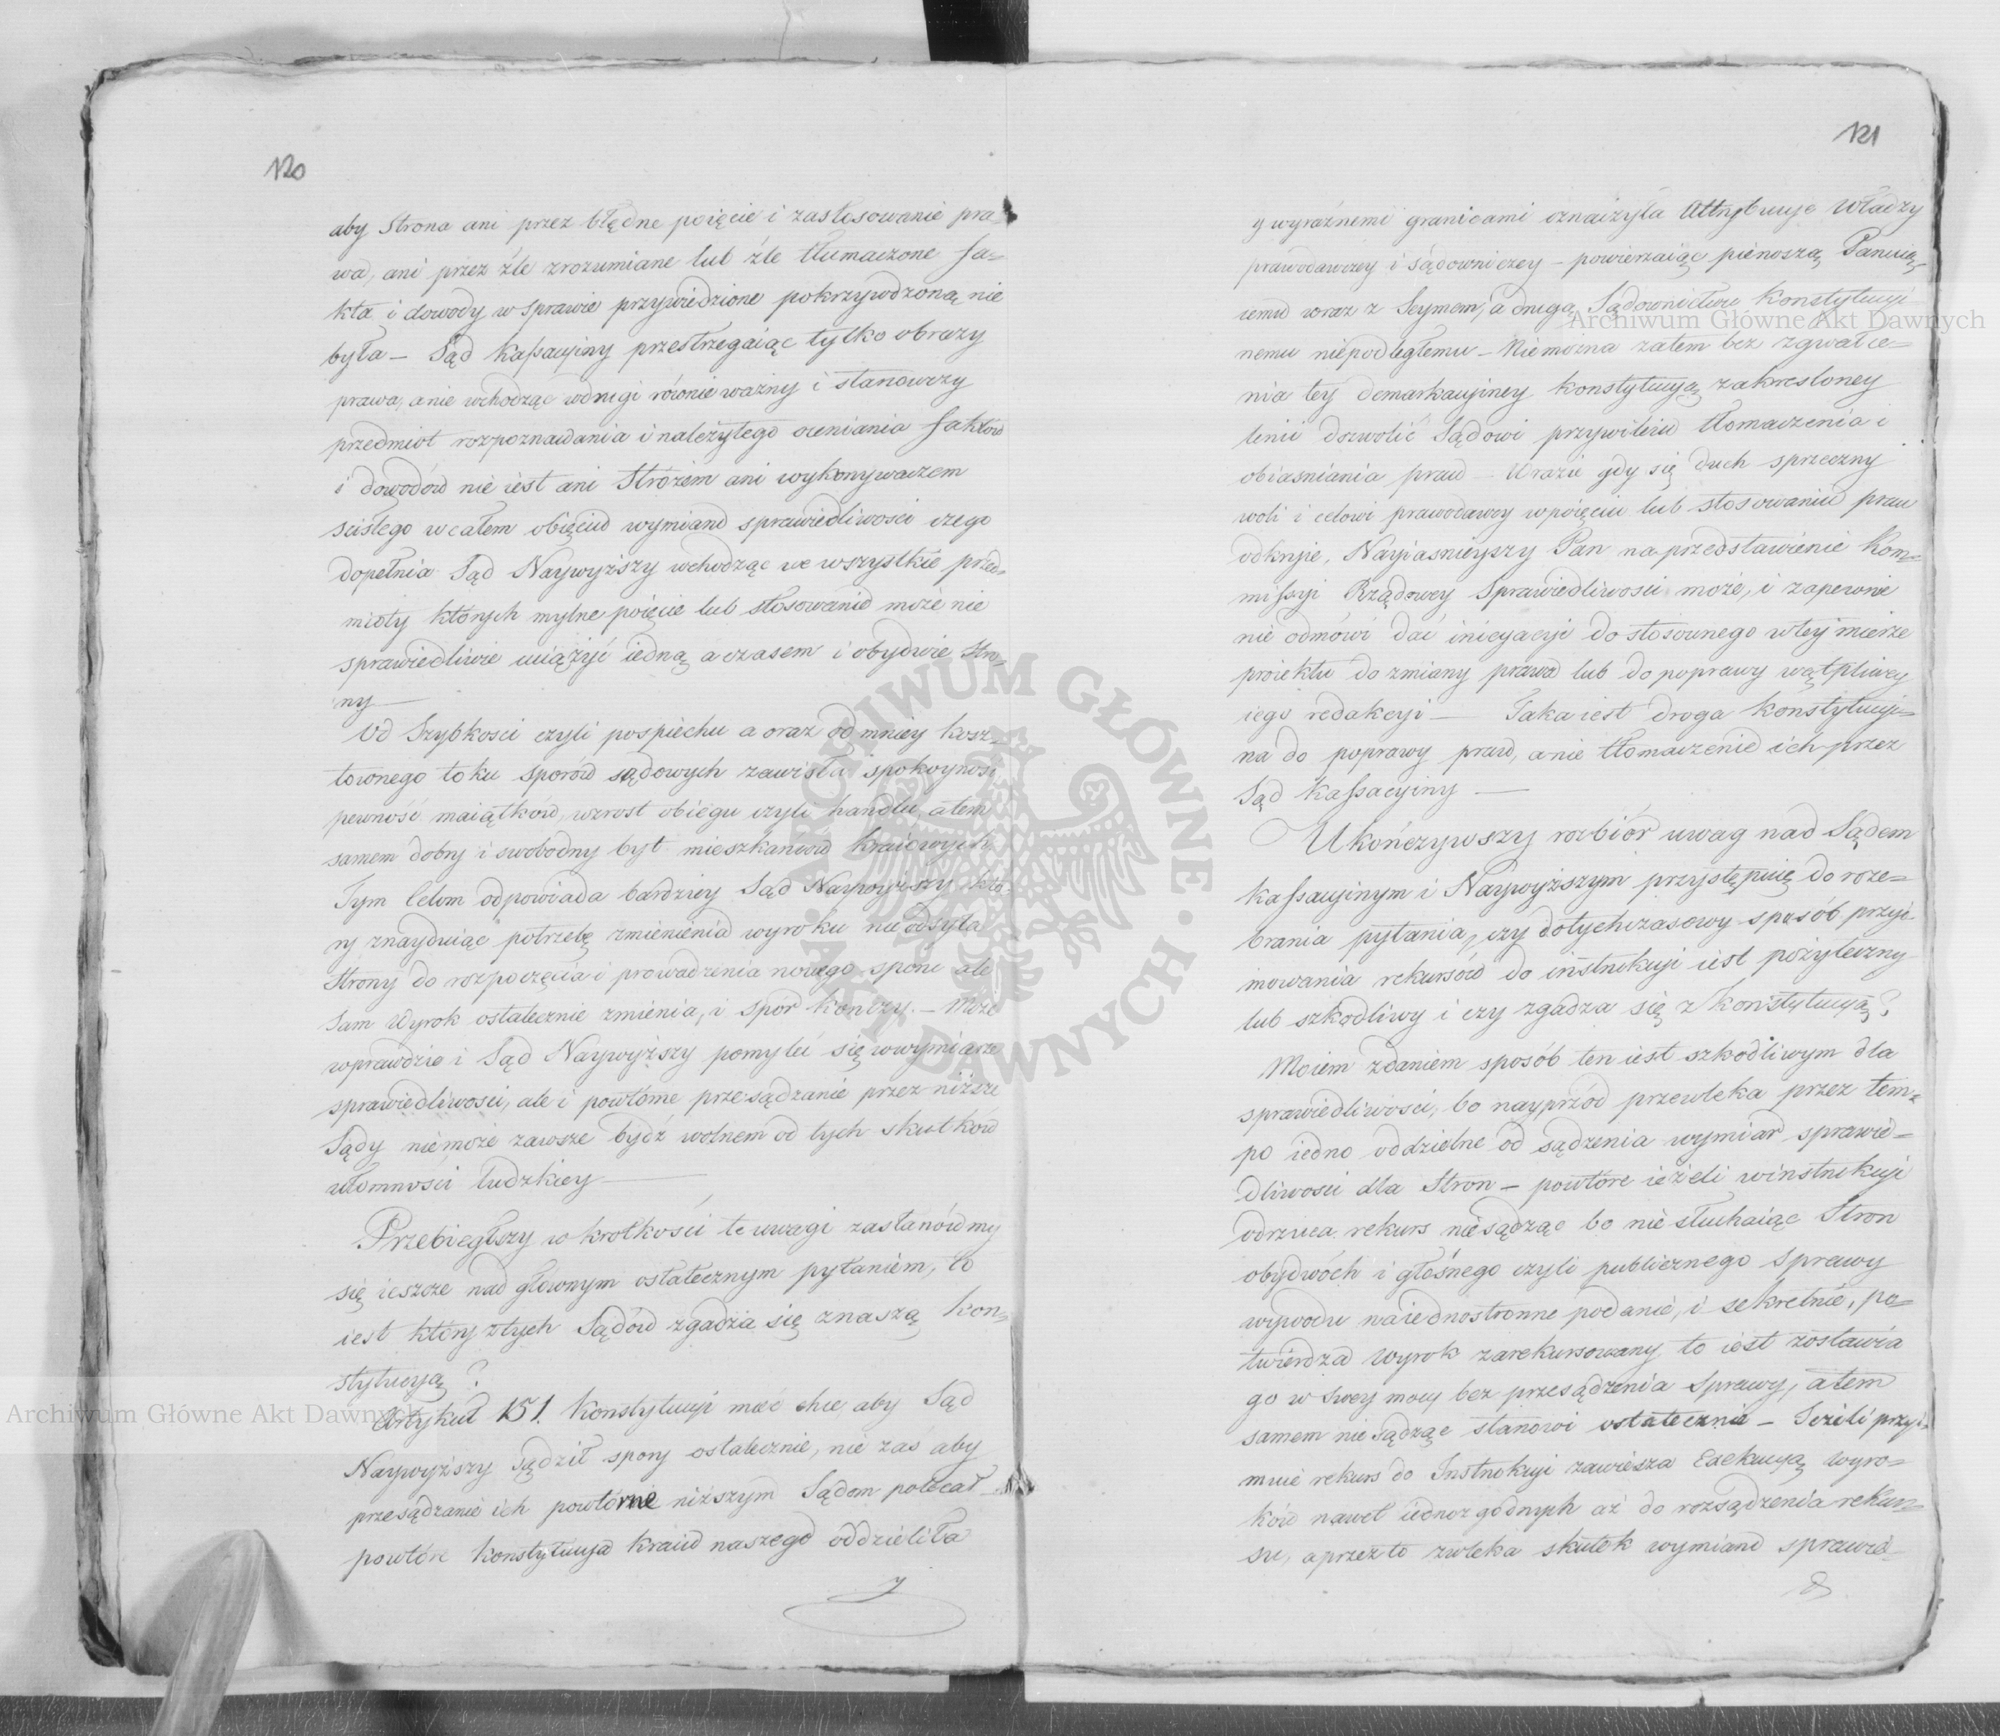 120
aby Strona ani przez błędne poięcie i zastosowanie pra-
wa, ani przez źle zrozumiane lub źle tłumaczone fa-
kta i dowody w sprawie przywiedzione pokrzywdzoną nie
była — Sąd Kassacyiny przestrzegaiąc tylko obrazy
prawa, a nie wchodząc w drugi równie ważny i stanowczy
przedmiot rozpoznawania i należytego oceniania faktów
i dowodów nie iest ani Stróżem ani wykonywaczem
scisłego w całem obięciu wymiaru sprawiedliwosci czego
dopełnia Sąd Naywyższy wchodząc we wszystkie przed-
mioty których mylne poięcie lub stosowanie może nie
sprawiedliwie uciążyć iedną a czasem i obydwie Stro-
ny —
Od Szybkosci czyli pospiechu a oraz od mniey kosz-
townego toku sporów sądowych zawisła spokoyność
pewność maiątków, wzrost obiegu czyli handlu, a tem
samem dobry i swobodny byt mieszkańców kraiowych
Tym Celom odpowiada bardziey Sąd Naywyższy któ-
ry znayduiąc potrzebę zmienienia wyroku nie odsyła
Strony do rozpoczęcia i prowadzenia nowego sporu ale
Sam Wyrok ostatecznie zmienia, i spór kończy. — Może
wprawdzie i Sąd Naywyższy pomylić się w wymiarze
sprawiedliwosci, ale i powtórne przesądzanie przez niższe
Sądy nie może zawsze bydź wolnem od tych skutków
ułomności ludzkiey —
Przebiegłszy w krótkości te uwagi zastanówmy
się ieszcze nad głównym ostatecznym pytaniem, to
iest który z tych Sądów zgadza się z naszą Kon-
stytucyą?
Artykuł 151. Konstytucyi mieć chce aby Sąd
Naywyższy sądził spory ostatecznie, nie zaś aby
przesądzanie ich powtórne niższym Sądom polecał
powtóre Konstytucya kraiu naszego oddzieliła
y
121
y wyraźnemi granicami oznaczyła Attrybucye Władzy
prawodawczey i sądowniczey — powierzaiąc pierwszą Panuią-
cemu wraz z Seymem, a drugą Sądownictwu Konstytucyi-
nemu niepodległemu — Nie można zatem bez zgwałce-
nia tey demarkacyiney Konstytucyą zakresloney
linii dozwolić Sądowi przywileiu tłomaczenia i
obiasniania praw — W razie gdy się duch sprzeczny
woli i celowi prawodawcy w poięciu lub stosowaniu praw
odkryie, Nayiasnieyszy Pan na przedstawienie Kom-
missyi Rządowey Sprawiedliwosci może, i zapewne
nie odmówi dać inicyacyi do stosownego w tey mierze
proiektu do zmiany prawa lub do poprawy wątpliwey
iego redakcyi — Taka iest droga konstytucyi-
na do poprawy praw, a nie tłomaczenie ich przez
Sąd Kassacyiny —
Ukończywszy rozbiór uwag nad Sądem
Kassacyinym i Naywyższym przystępuię do roze-
brania pytania, czy dotychczasowy sposób przyi-
mowania rekursów do instrukcyi iest pożyteczny
lub szkodliwy i czy zgadza się z Konstytucyą?
Moiem zdaniem sposób ten iest szkodliwym dla
sprawiedliwosci, bo nayprzód przewleka przez tem-
po iedno oddzielne od sądzenia wymiar sprawie-
dliwosci dla Stron — powtóre ieżeli w instrukcyi
odrzuca rekurs nie sądząc bo nie słuchaiąc Stron
obydwóch i głośnego czyli publicznego Sprawy
wywodu na iednostronne podanie, i sekretnie, po-
twierdza Wyrok zarekursowany to iest zostawia
go w swey mocy bez przesądzenia Sprawy, a tem
samem nie sądząc stanowi ostatecznie — Jeżeli przyi-
muie rekurs do Instrukcyi zawiesza Exekucyą wyro-
ków nawet iednozgodnych aż do rozsądzenia rekur-
su, a przez to zwleka skutek wymiaru sprawie-
Archiwum Główne Akt Dawnych
Archiwum Główne Akt Dawnych
ARCHIWUM GŁÓWNE · AKT DAWNYCH ·